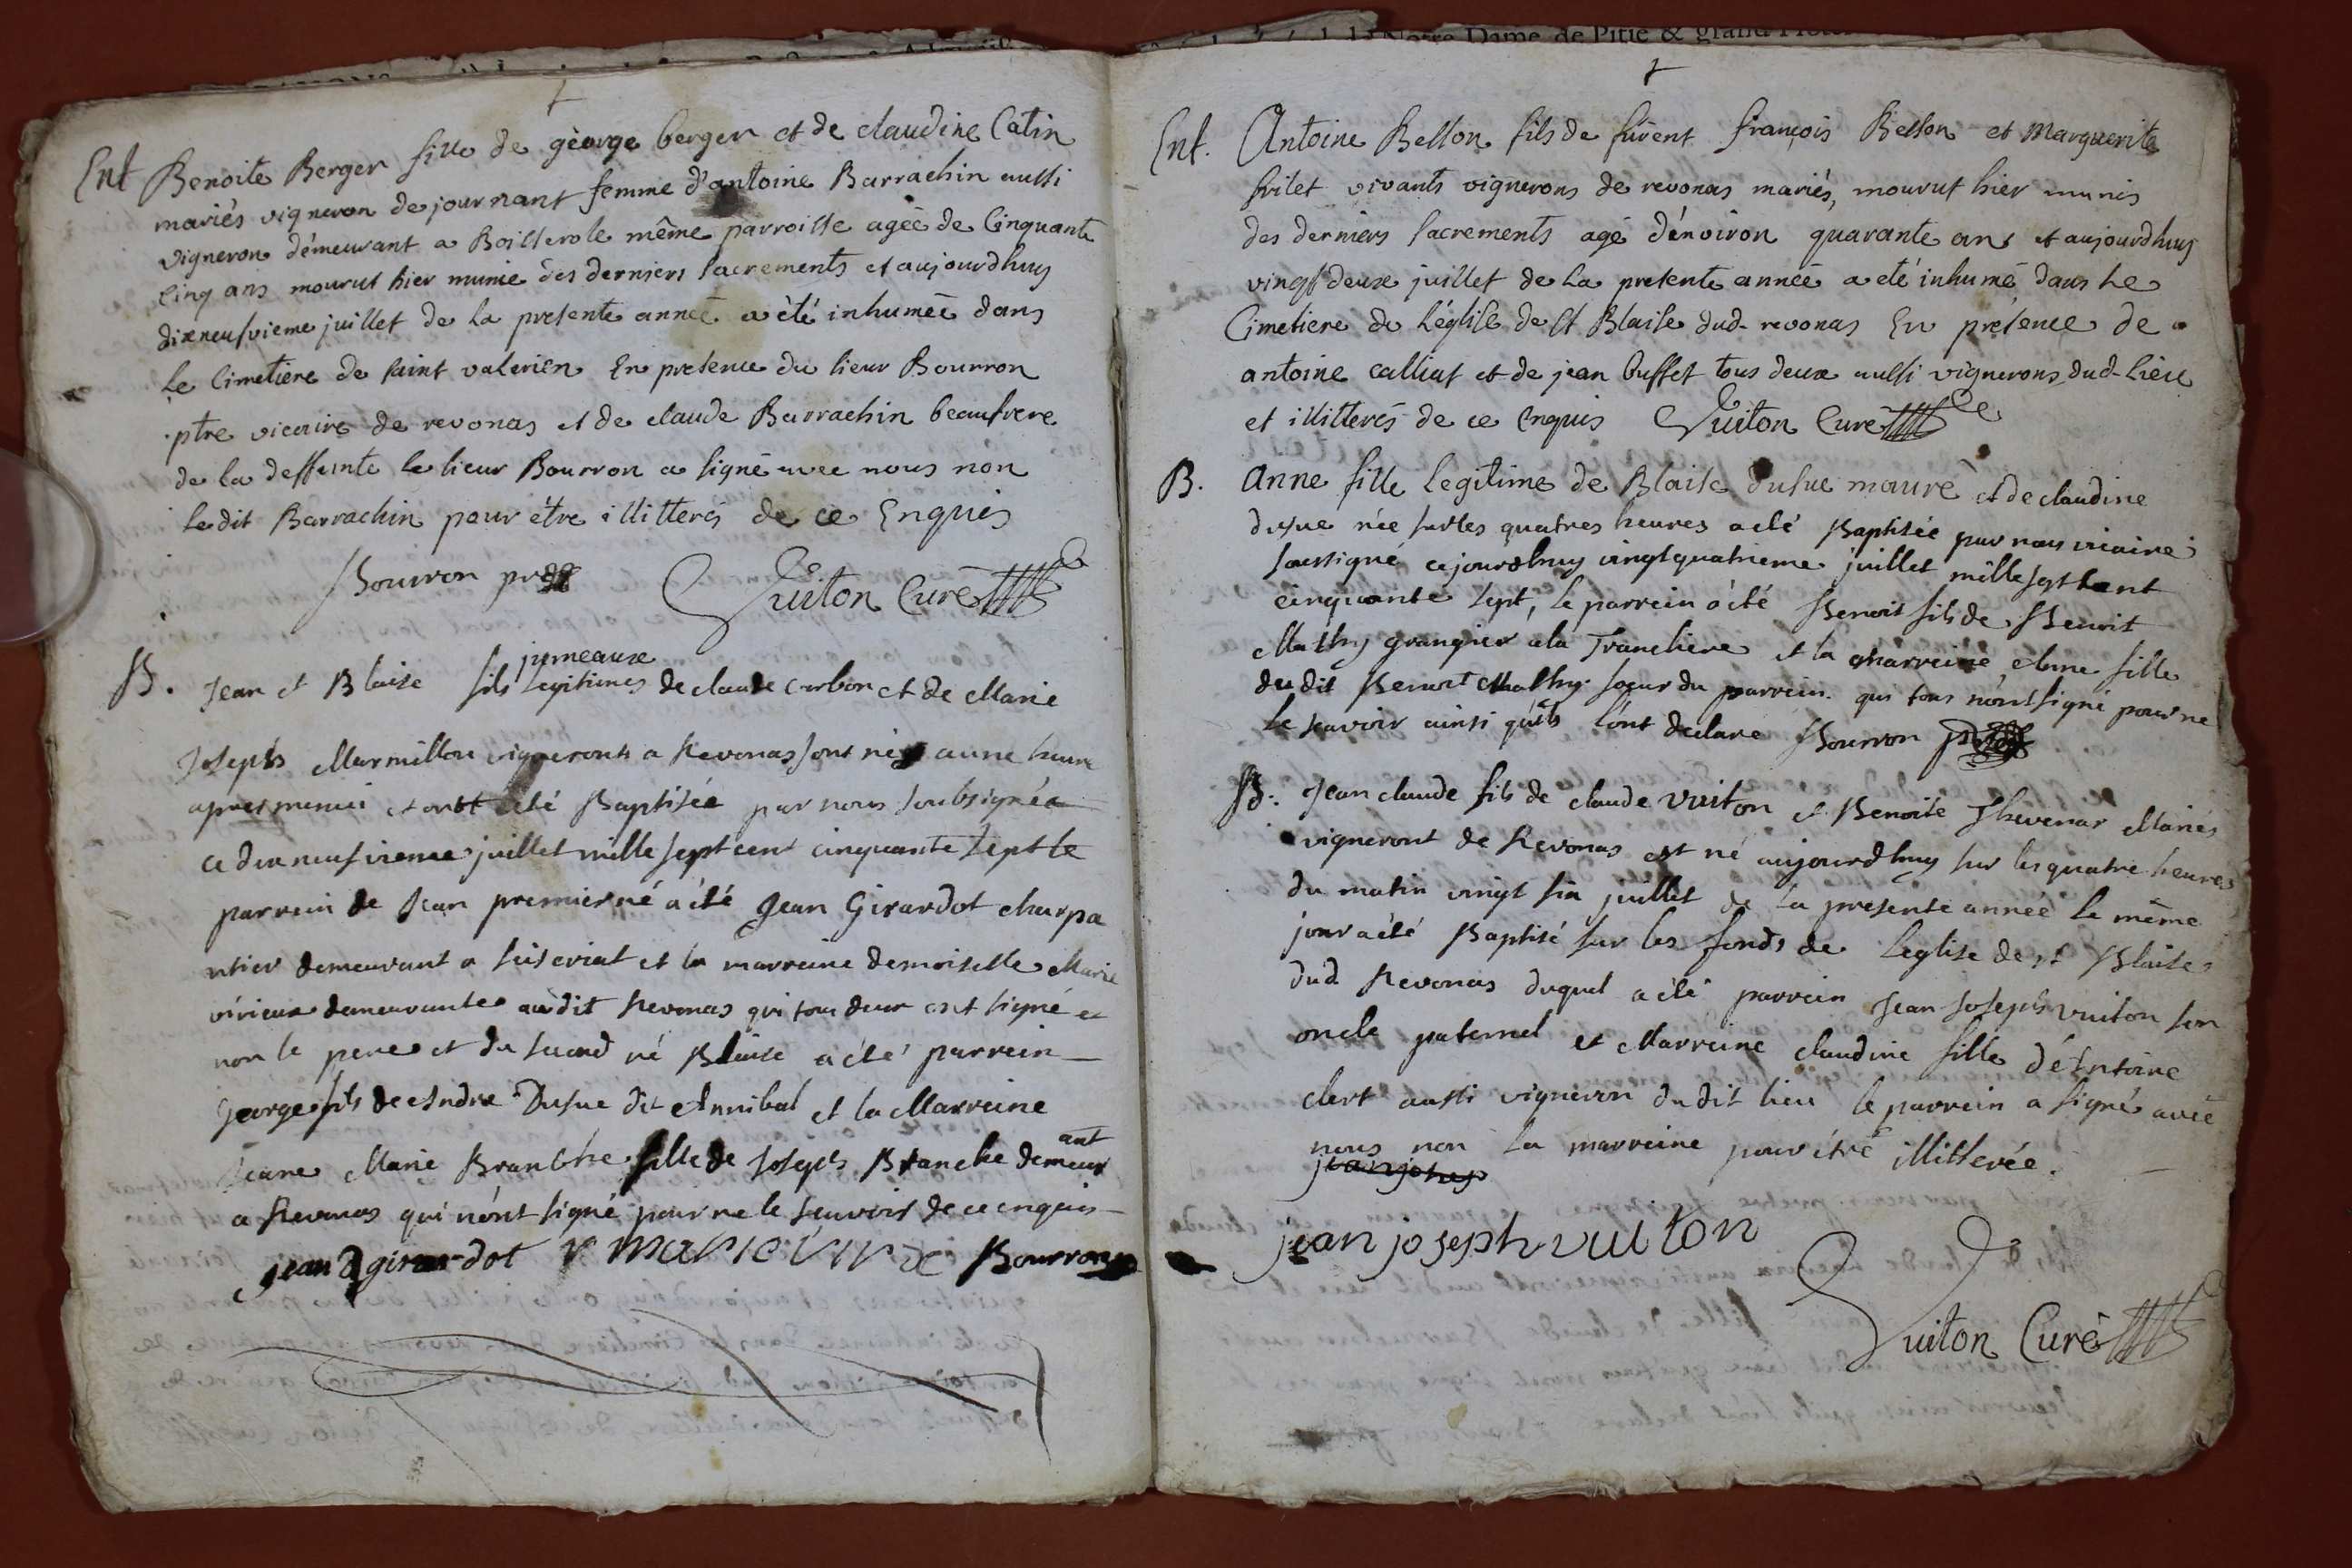 Notre Dame de Pitie & grand
†
Ent Benoite Berger fille de gèorge berger et de claudine Catin
mariés vigneron de journant femme d'antoine Barrachin aussi
vigneron démeurant a Boisserole même parroisse agèe de Cinquante
Cinq ans mourut hier munie des derniers Sacrements et aujourdhuy
dixneufvieme juillet de la presente année a èté inhumèe dans
le Cimetiere de saint valerien En presence du sieur Bourron
ptre vicaire de revonas et de claude Barrachin beaufrere
de la deffunte le sieur Bourron a signé avec nous non
ledit Barrachin pour être illitterés de ce Enquis
Bourron
Vuiton Curé
jumeaux
B. Jean et Blaise fils legitimes de claude curbon et de Marie
Joseph Marmillon vigneronts a Revonas sont nés a une heure
apres menui et ont été Baptisée par nous soubsignée
ce dix neufvieme juillet mille sept cent cinquante sept le
parrein de Jean premier né a été Jean Girardot charpa
ntier demeurant a seiseriat et la marreine demoiselle Marie
virieux demeurante audit Revonas qui tous deux ont signé et
non le pere et du second né Blaise a été parrein
George fils de Andre Dufue dit Annibal et la Marreine
ant
Jeane Marie Branche fille de Joseph Branche demeur
a Revonas qui n'ont signé pour ne le sçavoir de ce enquis
jean girardot marie Bourron
†
Ent. Antoine Bellon fils de furent françois Bellon et Marguerite
vivants vignerons de revonas mariés, mourut hier munis
des derniers sacrements agé d'énviron quarante ans et aujourdhuy
vingt deux juillet de la presente année a eté inhumé dans le
Cimetiere de l'église de St Blaise dud. revonas En présence de
antoine calliat et de jean buffet tous deux aussi vignerons dud. lieu
et illitterés de ce Enquis Vuiton Curé
B. Anne fille legitime de Blaise dufue maurè et de claudine
dufue née sur les quatres heures a eté Baptisée par nous vicaire
soussigné cejourdhuy vingtquatrieme juillet mille sept cent
cinquante sept, le parrein a été Benoit fils de Benoit
Mathy grangier à la Tranchere et la marreine Anne fille
du dit Benoit Mathy soeur du parrein qui tous n'ont signé pour ne
le sçavoir ainsi qu'ils l'ont declaré Bourron
B. Jean claude fils de claude vuiton et Benoite Thevenar Mariés
vigneront de Revonas est né aujourdhuy sur les quatre heures
du matin vingt six juillet de la presente année le même
jour a été Baptisé sur les fonds de l'eglise de st Blaise
dud Revonas duquel a été parrein Jean Joseph vuiton son
oncle paternel et Marreine claudine fille d'Antoine
clert aussi vigneron du dit lieu le parrein a signé avec
nous non la marreine pour être illitterée.
jean josep
jean joseph vuiton
Vuiton Curé